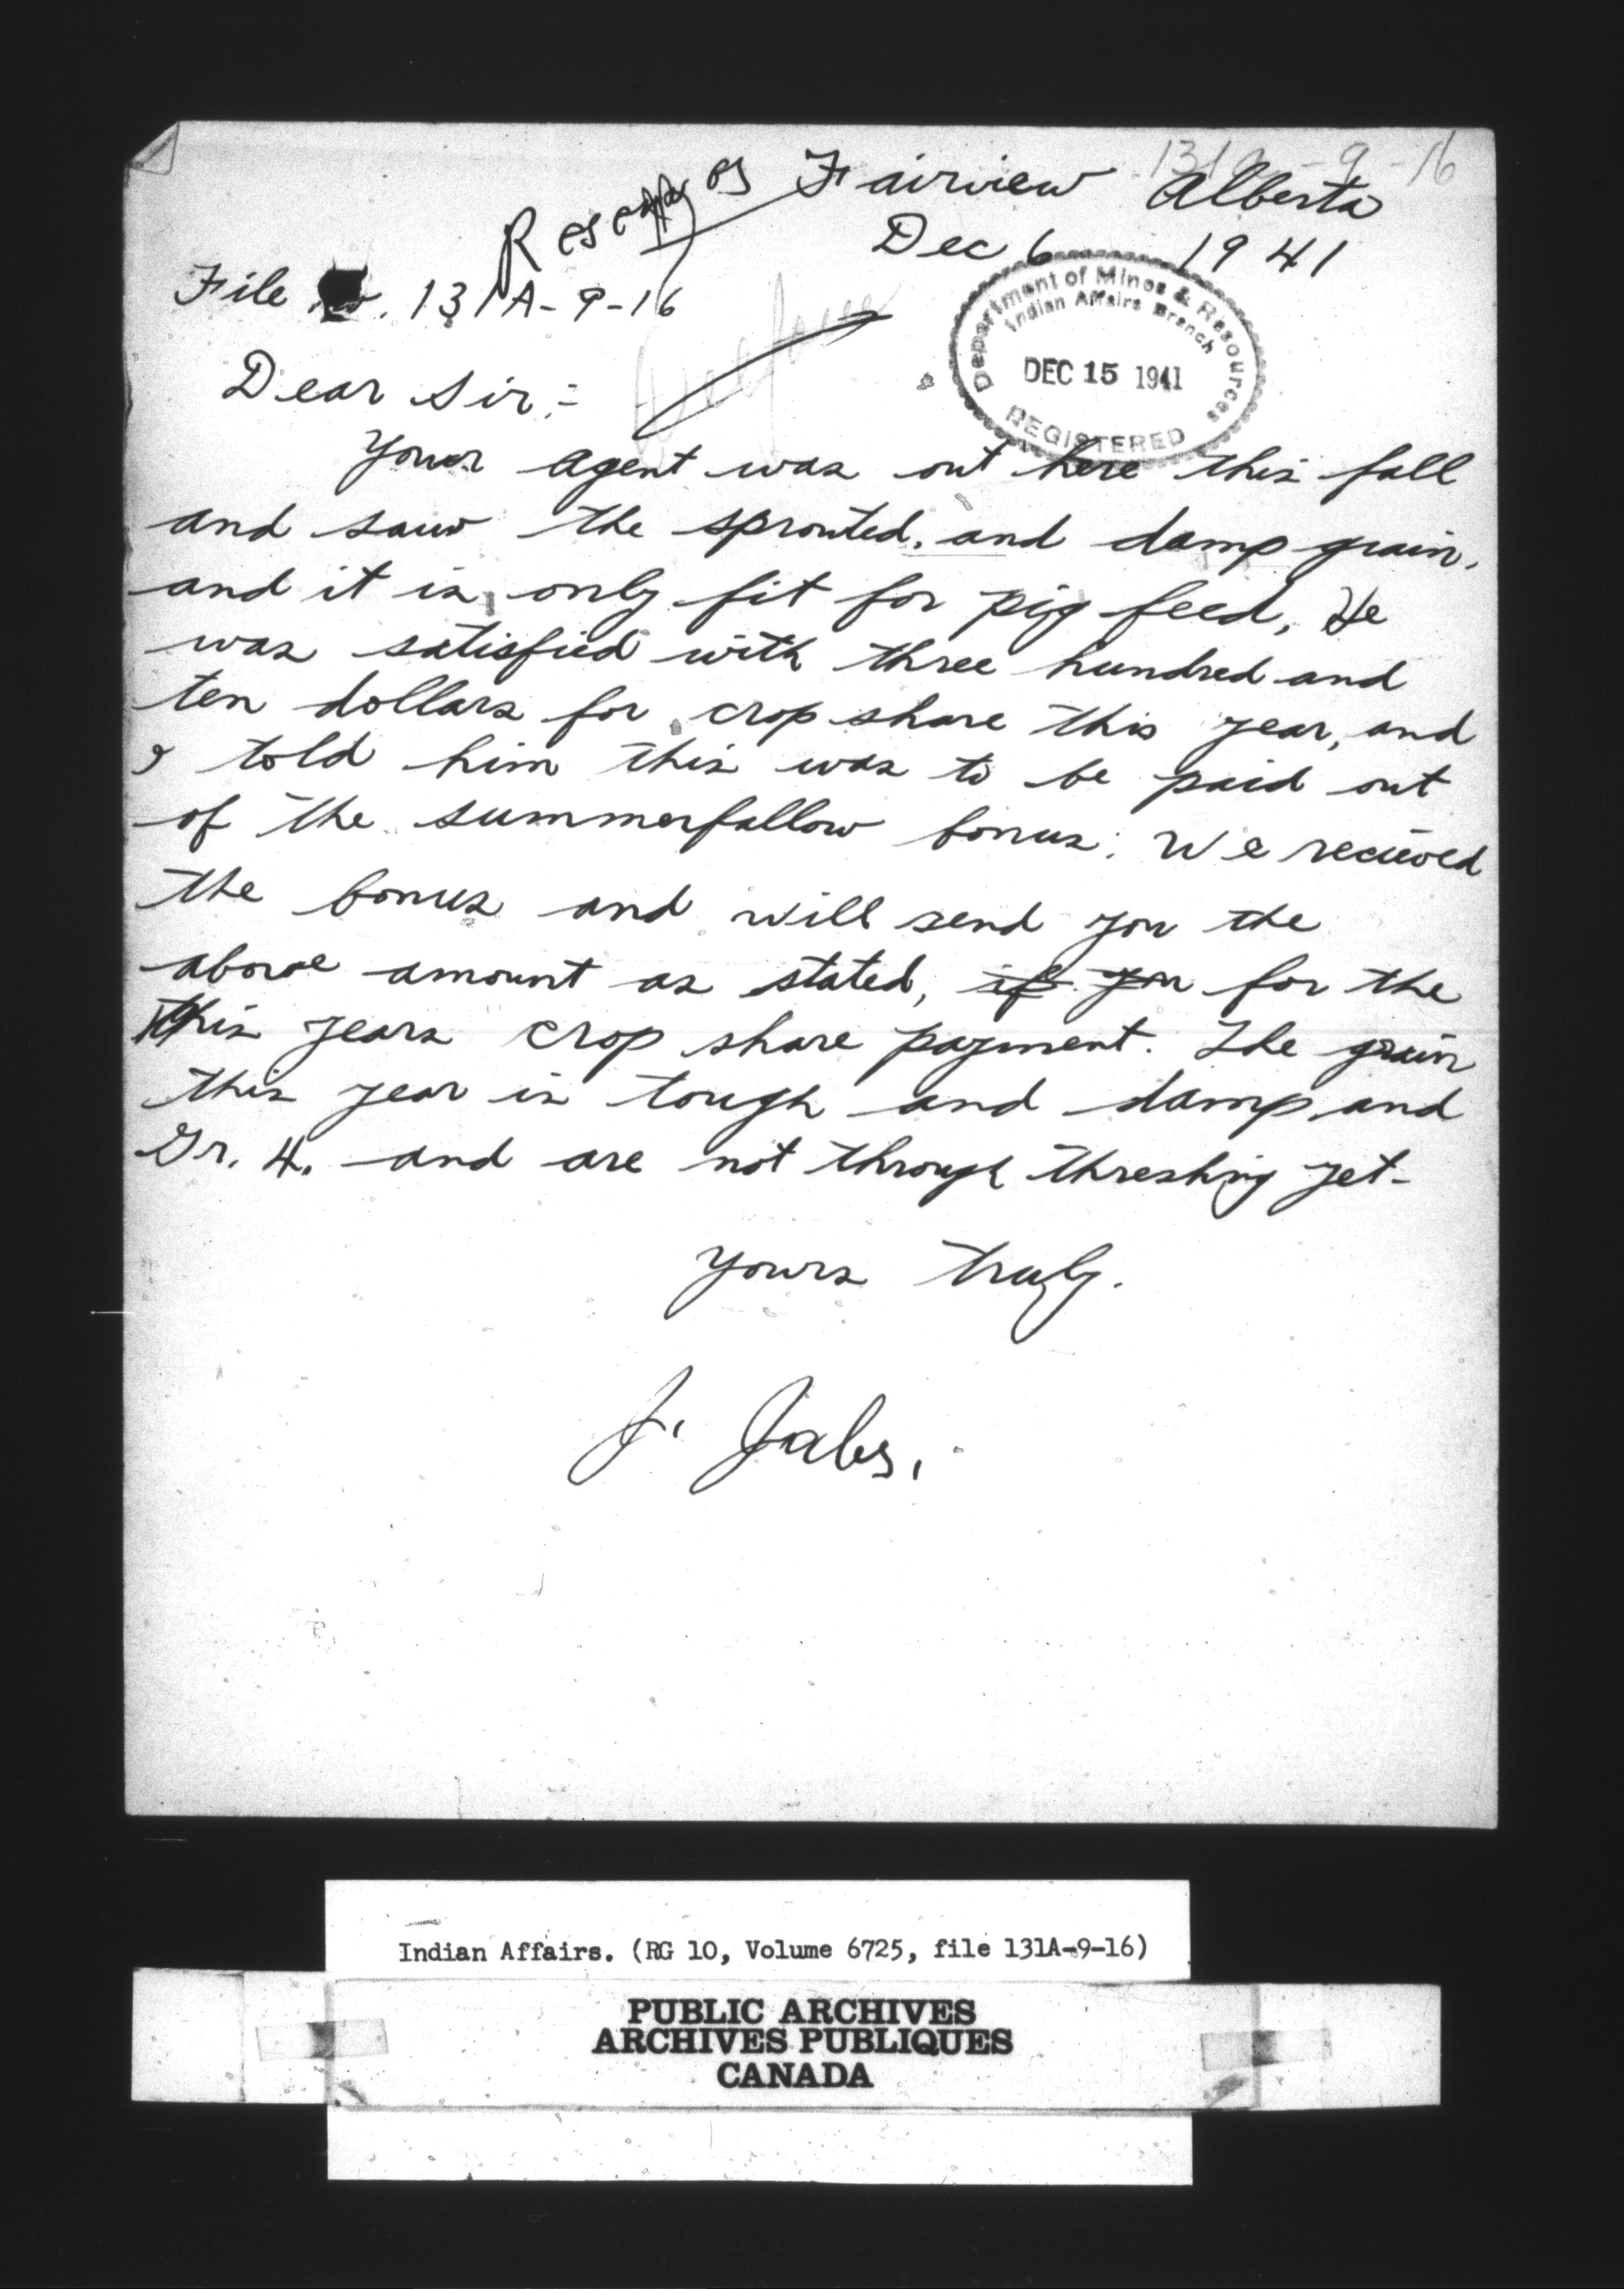 131A-9-16
Reserves
Fairview Alberta
Dec 6 1941
File No. 131A-9-16
Department of Mines & Resources
Indian Affairs Branch
DEC 15 1941
REGISTERED
Dear Sir:-
Your agent was out here this fall
and saw the sprouted, and damp grain,
and it is only fit for pig feed, He
was satisfied with three hundred and
ten dollars for crop share this year, and
I told him this was to be paid out
of the summerfallow bonus. We recieved
the bonus and will send you the
above amount as stated, if you for the
this years crop share payment. The grain
this year is tough and damp and
Gr. 4. and are not through threshing yet-
Yours truly.
J. Jabs.
Indian Affairs. (RG 10, Volume 6725, file 131A-9-16)
PUBLIC ARCHIVES
ARCHIVES PUBLIQUES
CANADA